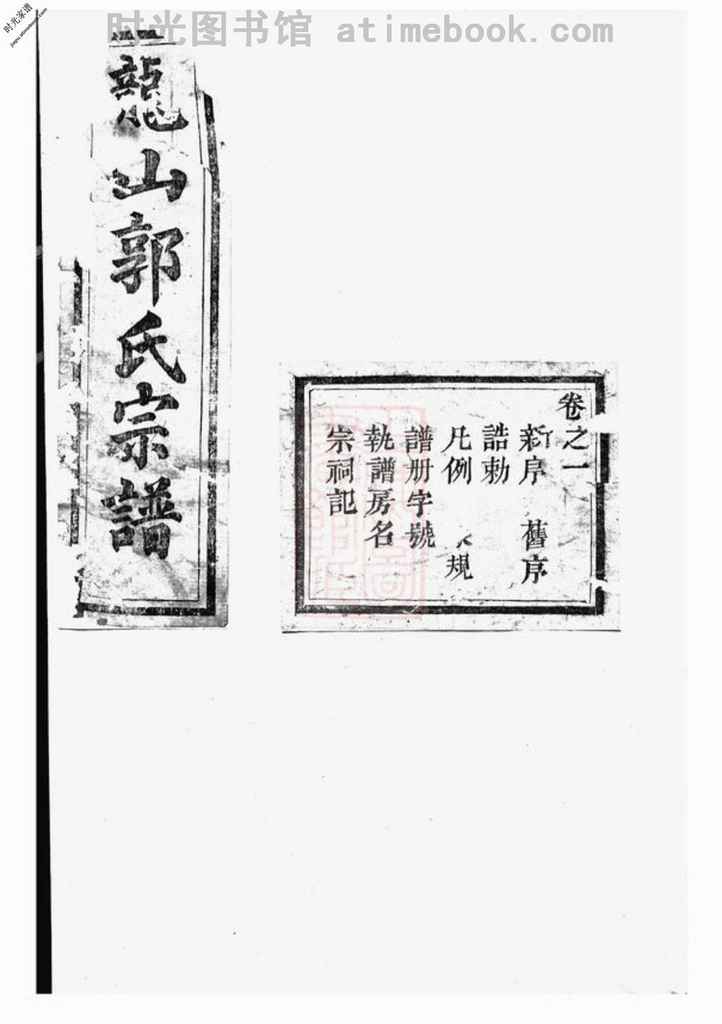 时光图书馆 atimebook.com
时光家谱
龍山郭氏宗譜
卷之一
新序 舊序
誥勅
凡例 規
譜册字號
執譜房名
宗祠記